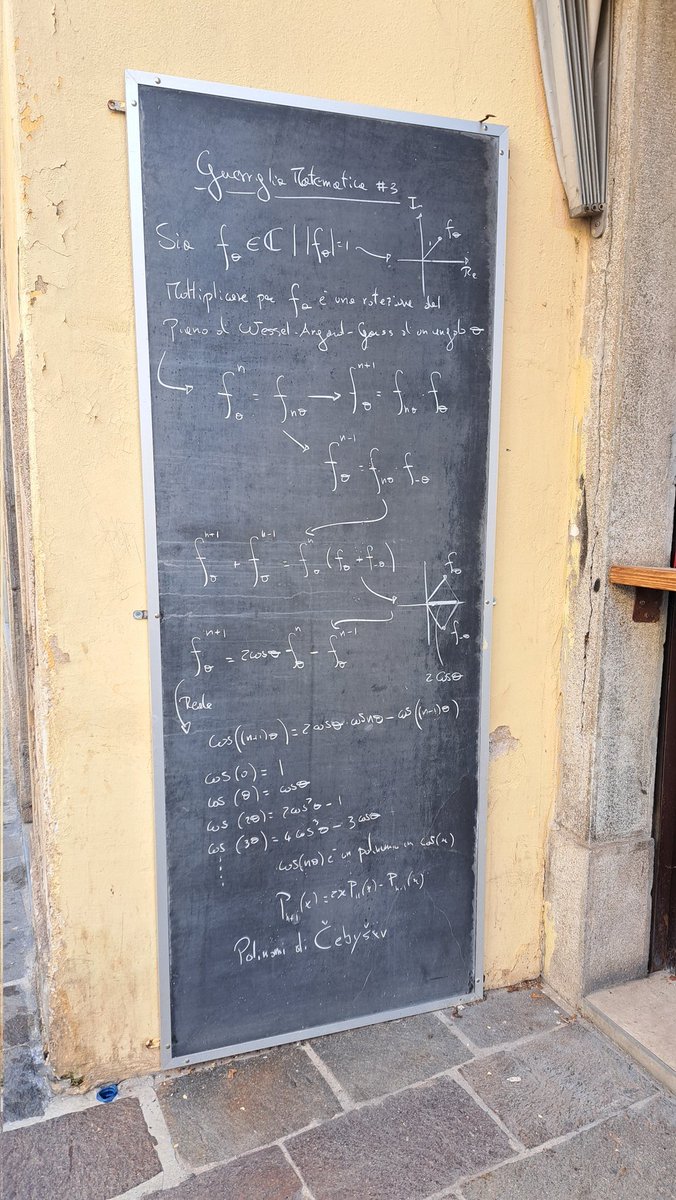 Guerriglia Matematica #3
Sia f_θ ∈ ℂ | |f_θ|=1 →
Im
f_θ
1
Re
Moltiplicare per f_θ è una rotazione del
Piano di Wessel-Argand-Gauss di un angolo θ
f_θ^n = f_nθ → f_θ^{n+1} = f_nθ · f_θ
f_θ^{n-1} = f_nθ · f_-θ
f_θ^{n+1} + f_θ^{n-1} = f_θ^n (f_θ + f_-θ)
f_θ
f_-θ
2cosθ
f_θ^{n+1} = 2cosθ f_θ^n - f_θ^{n-1}
Reale
cos((n+1)θ) = 2cosθ·cosnθ - cos((n-1)θ)
cos(0) = 1
cos(θ) = cosθ
cos(2θ) = 2cos²θ - 1
cos(3θ) = 4cos³θ - 3cosθ
⋮
cos(nθ) è un polinomio in cos(x)
P_{n+1}(x) = 2x P_n(x) - P_{n-1}(x)
Polinomi di Čebyšëv